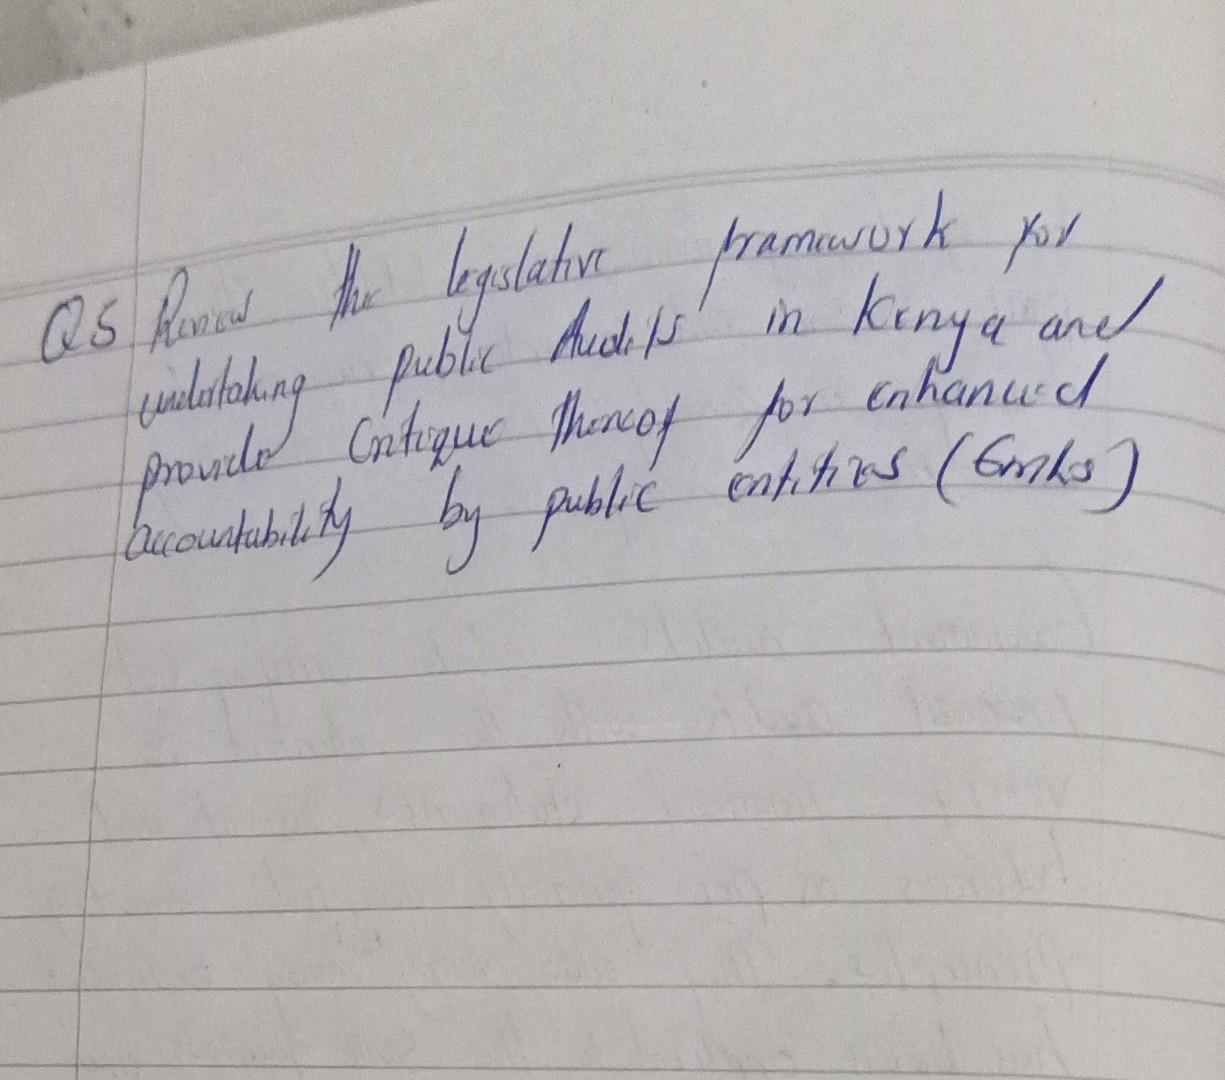 Q5 Review the legislative framework for
undertaking public Audits in Kenya and
provide Critique thereof for enhanced
accountability by public entities (6mks)